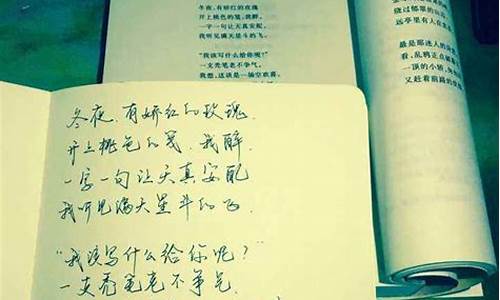 冬夜，有娇红的玫瑰
开上桃色的笺，我醉，
一字一句让天真安配
我听见满天星斗的飞
“我该写什么给你呢？”
一支秃笔老不争气
我想，这该是一场空欢喜
绕过郁郁的山
远亭里有人在
最是那迷人的
看，乱鸦正点破
一顶的小轿，
又赶着前路的
冬夜，有娇红的玫瑰，
开上桃色的笺，我醉，
一字一句让天真安配
我听见满天星斗的飞。
“我该写什么给你呢？”
一支秃笔老不争气，